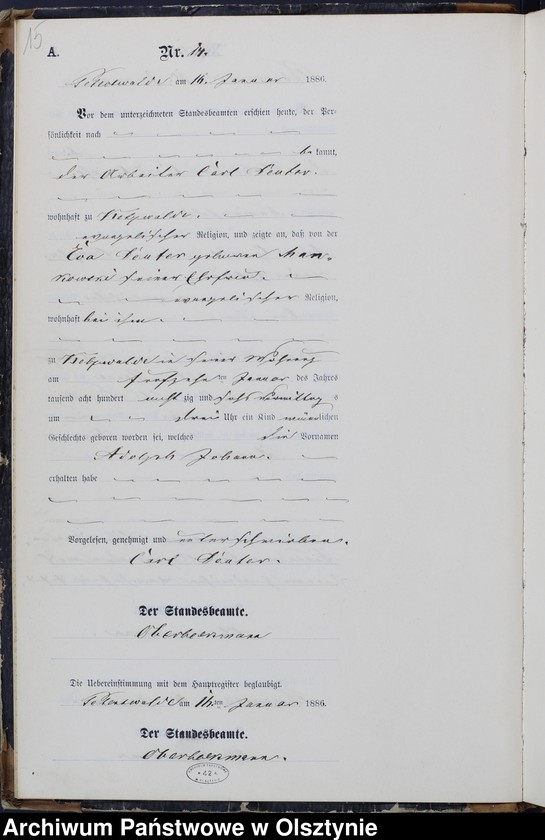 15
A. Nr. 14.
am 16. Januar 1886.
Vor dem unterzeichneten Standesbeamten erschien heute, der Per-
sönlichkeit nach
bekannt,
der Arbeiter Carl
wohnhaft zu
evangelischer Religion, und zeigte an, daß von der
Eva geborene Man-
kowski seiner Ehefrau.
evangelischer Religion,
wohnhaft bei ihm.
zu in seiner Wohnung
am fünfzehnten Januar des Jahres
tausend acht hundert achtzig und sechs Vormittags
um drei Uhr ein Kind männlichen
Geschlechts geboren worden sei, welches die Vornamen
Adolph Johann.
erhalten habe
Vorgelesen, genehmigt und unterschrieben.
Carl
Der Standesbeamte.
Oberbeckmann
Die Uebereinstimmung mit dem Hauptregister beglaubigt.
am 16ten Januar 1886.
Der Standesbeamte.
Oberbeckmann.
* 42 *
Archiwum Państwowe w Olsztynie